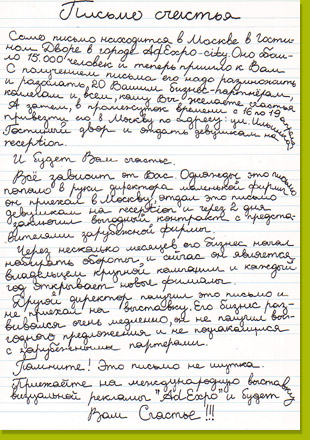 Письмо счастья
Само письмо находится в Москве в Гости-
ном Дворе в городе AdExpo-city. Оно обош-
ло 15.000 человек и теперь пришло к Вам
С получением письма его надо размножить
и разослать, 20 Вашим бизнес-партнёрам,
коллегам и всем, кому Вы желаете счастья
А затем, в промежуток времени с 16 по 19
привезти его в Москву по адресу: ул. Ильинка
Гостиный двор и отдать девушкам на
reception.
И будет Вам счастье.
Всё зависит от Вас. Однажды это письмо
попало в руки директора маленькой фирмы
он приехал в Москву, отдал это письмо
девушкам на reception и через 2 дня
заключил выгодный контракт с предста-
вителями зарубежной фирмы.
Через несколько месяцев его бизнес начал
набирать обороты, и сейчас он является
владельцем крупной компании и каждый
год открывает новые филиалы.
Другой директор получил это письмо и
не приехал на Выставку. Его бизнес раз-
вивался очень медленно, он не получил вы-
годного предложения и не познакомился
с зарубежными партнерами.
Помните! Это письмо не шутка.
Приезжайте на международную выставку
визуальной рекламы "AdExpo" и будет
Вам Счастье!!!